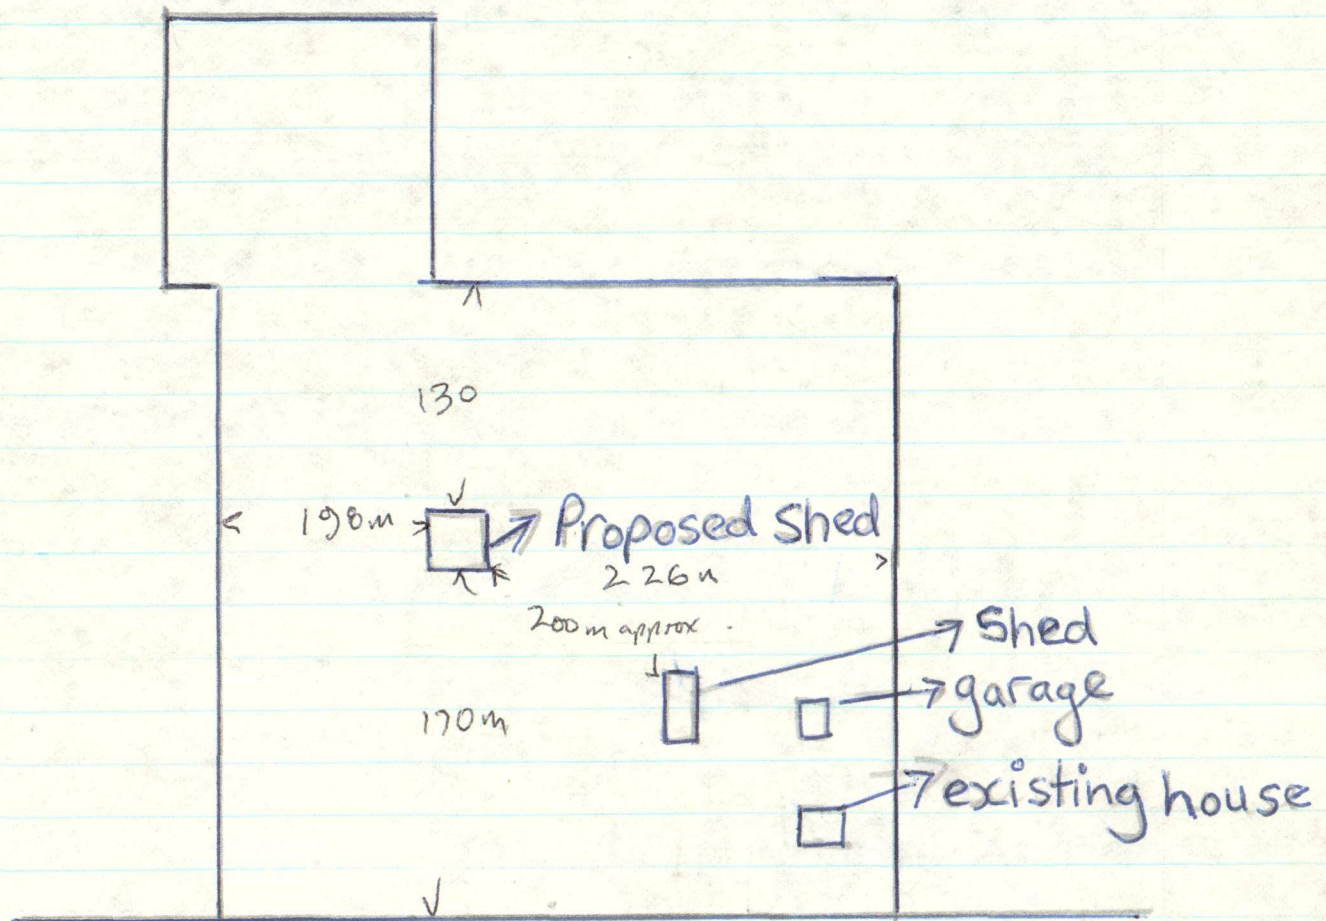 130
198m
Proposed Shed
226m
200m approx.
Shed
garage
170m
existing house